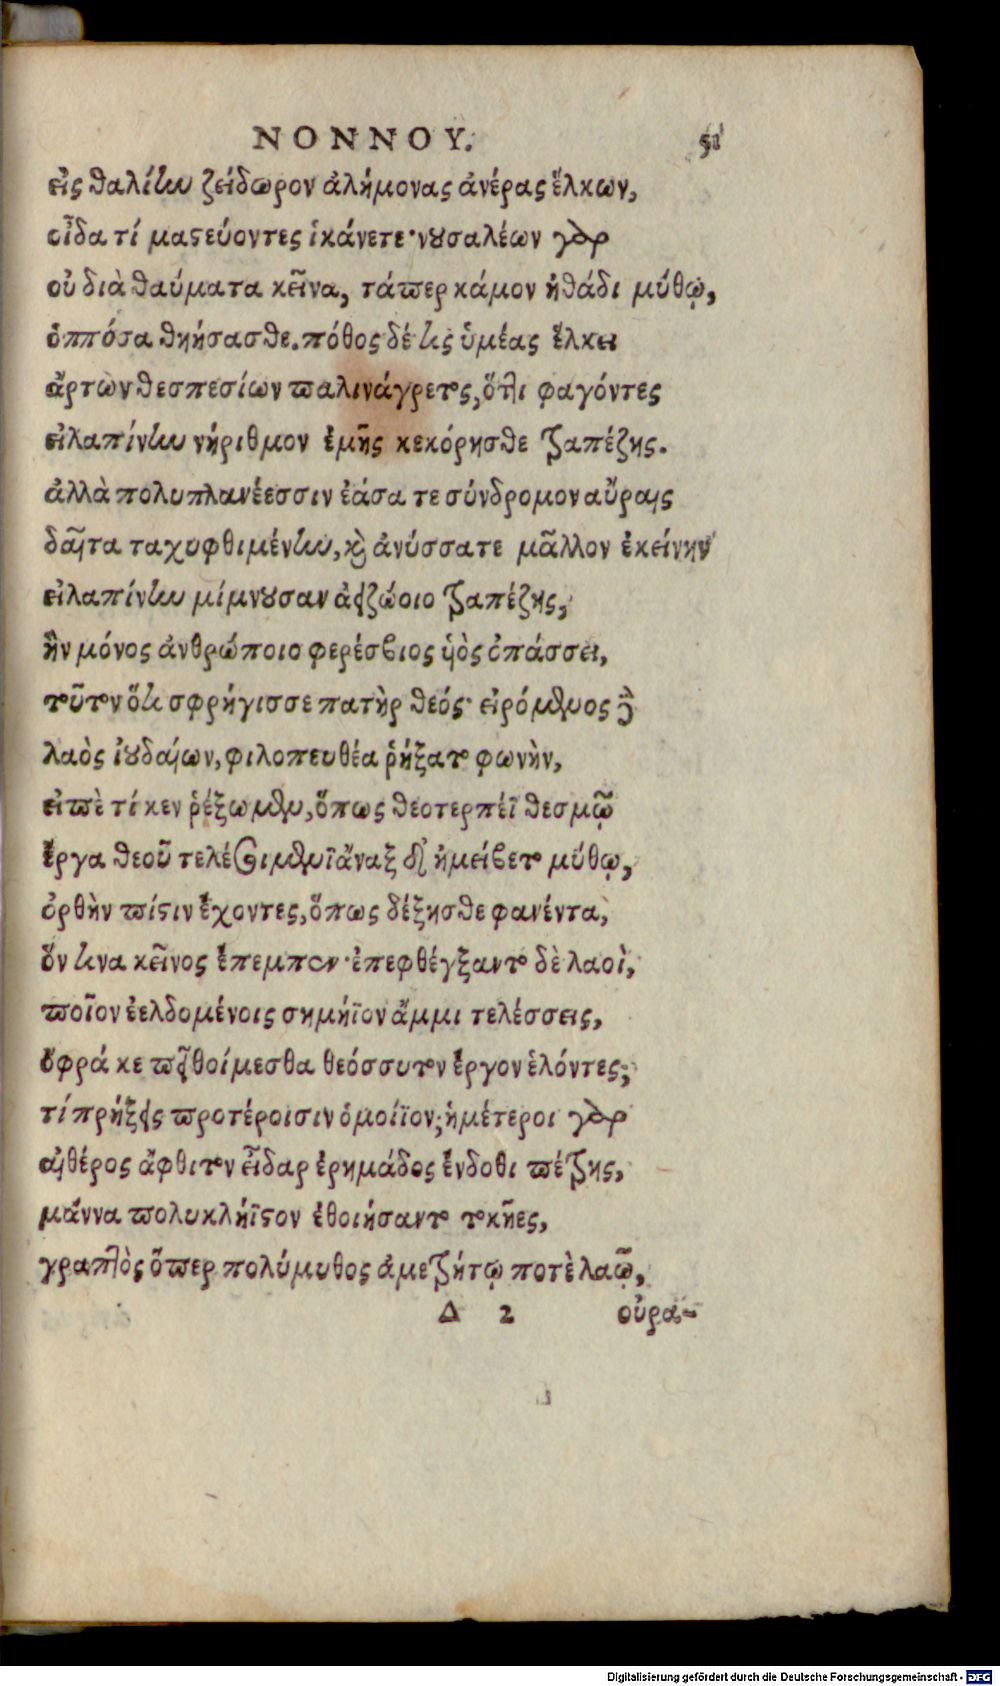 ΝΟΝΝΟΥ. 51
εἰς θαλίην ζείδωρον ἀλήμονας ἀνέρας ἕλκων,
οἶδα τί μαστεύοντες ἱκάνετε· νουσαλέων γὰρ
οὐ διὰ θαύματα κεῖνα, τάπερ κάμον ἠθάδι μύθῳ,
ὁππόσα θηήσασθε. πόθος δέ τις ὑμέας ἕλκει
ἄρτων θεσπεσίων παλινάγρετος, ὅττι φαγόντες
εἰλαπίνην νήριθμον ἐμῆς κεκόρησθε τραπέζης.
ἀλλὰ πολυπλανέεσσιν ἐάσατε σύνδρομον αὔραις
δαῖτα ταχυφθιμένην, καὶ ἀνύσσατε μᾶλλον ἐκείνην
εἰλαπίνην μίμνουσαν ἀειζώοιο τραπέζης,
ἣν μόνος ἀνθρώποιο φερέσβιος υἱὸς ὀπάσσει,
τοῦτον ὅτι σφρήγισσε πατὴρ θεός· εἰρόμενος δὲ
λαὸς ἰουδαίων, φιλοπευθέα ῥήξατο φωνὴν,
εἰπὲ τί κεν ῥέξωμεν, ὅπως θεοτερπέϊ θεσμῷ
ἔργα θεοῦ τελέσοιμεν; ἄναξ δ' ἠμείβετο μύθῳ,
ὀρθὴν πίστιν ἔχοντες, ὅπως δέξησθε φανέντα,
ὅν τινα κεῖνος ἔπεμπεν· ἐπεφθέγξαντο δὲ λαοὶ,
ποῖον ἐελδομένοις σημήϊον ἄμμι τελέσσεις,
ὄφρά κε πειθοίμεσθα θεόσσυτον ἔργον ἑλόντες;
τί πρήξεις προτέροισιν ὁμοίϊον; ἡμέτεροι γὰρ
αἰθέρος ἄφθιτον εἶδαρ ἐρημάδος ἔνδοθι πέτρης,
μάννα πολυκλήϊστον ἐθοιήσαντο τοκῆες,
γραπτὸς ὅπερ πολύμυθος ἀμετρήτῳ ποτὲ λαῷ,
Δ 2 οὐρα-
Digitalisierung gefördert durch die Deutsche Forschungsgemeinschaft - DFG